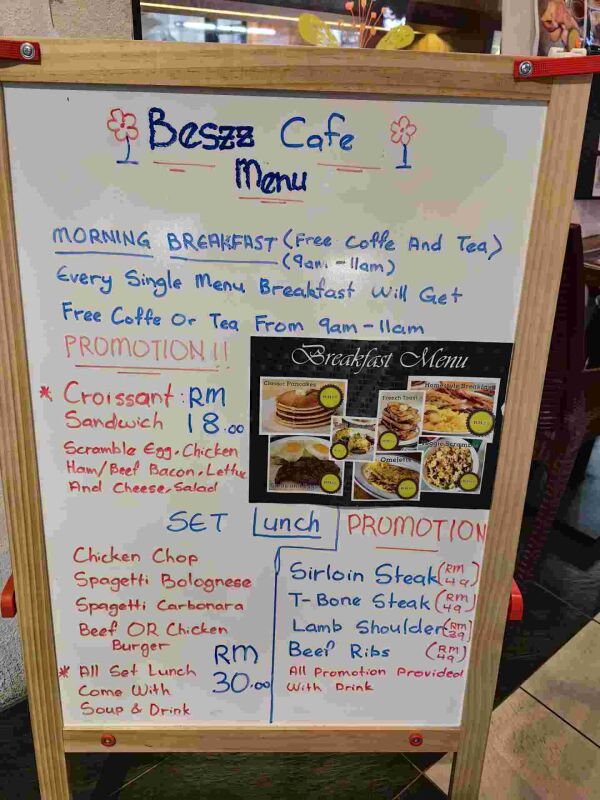 Beszz Cafe
Menu
MORNING BREAKFAST (Free Coffe And Tea)
(9am - 11am)
Every Single Menu Breakfast Will Get
Free Coffe Or Tea From 9am - 11am
PROMOTION!!
* Croissant : RM
Sandwich 18.00
Scramble Egg, Chicken
Ham/Beef Bacon, Lettuc
And Cheese, Salad
Breakfast Menu
Classic Pancakes
French Toast
Homestyle Breakfast
Omelette
Veggie Scramble
SET Lunch PROMOTION
Chicken Chop
Spagetti Bolognese
Spagetti Carbonara
Beef OR Chicken
Burger
* All Set Lunch
Come With
Soup & Drink
RM
30.00
Sirloin Steak (RM 49)
T-Bone Steak (RM 49)
Lamb Shoulder (RM 39)
Beef Ribs (RM 49)
All Promotion Provided
With Drink